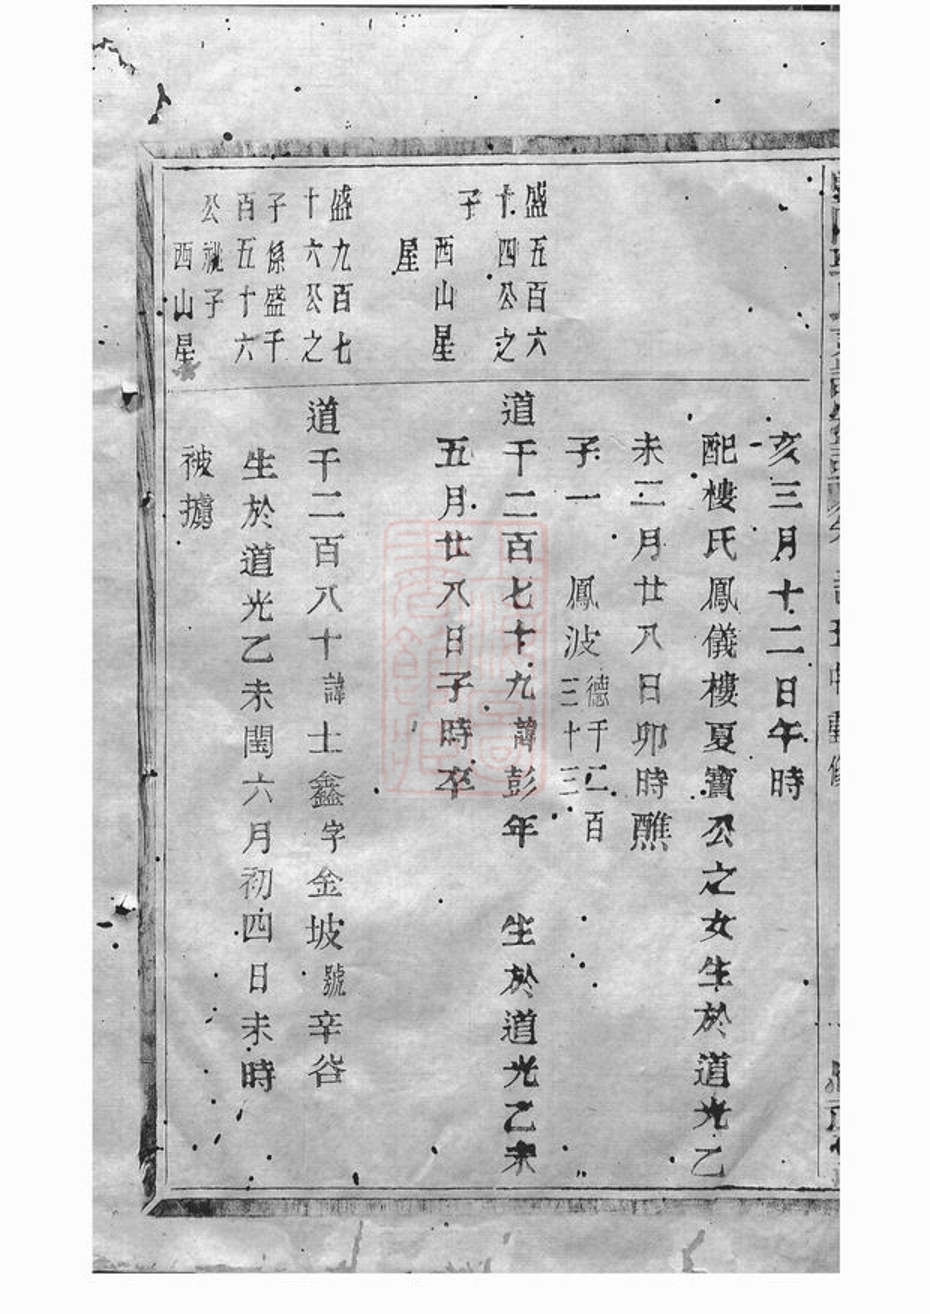 亥三月十二日午時
配樓氏鳳儀樓夏寶公之女生於道光乙
未二月廿八日卯時醮
子一 鳳波德千二百
三十三
盛五百六
十四公之
子
西山星
星
道千二百七十九諱彭年 生於道光乙未
五月廿八日子時卒
盛九百七
十六公之
子係盛千
百五十六
公祧子
西山星
道千二百八十諱士鑫字金坡號辛谷
生於道光乙未閏六月初四日未時
被擄